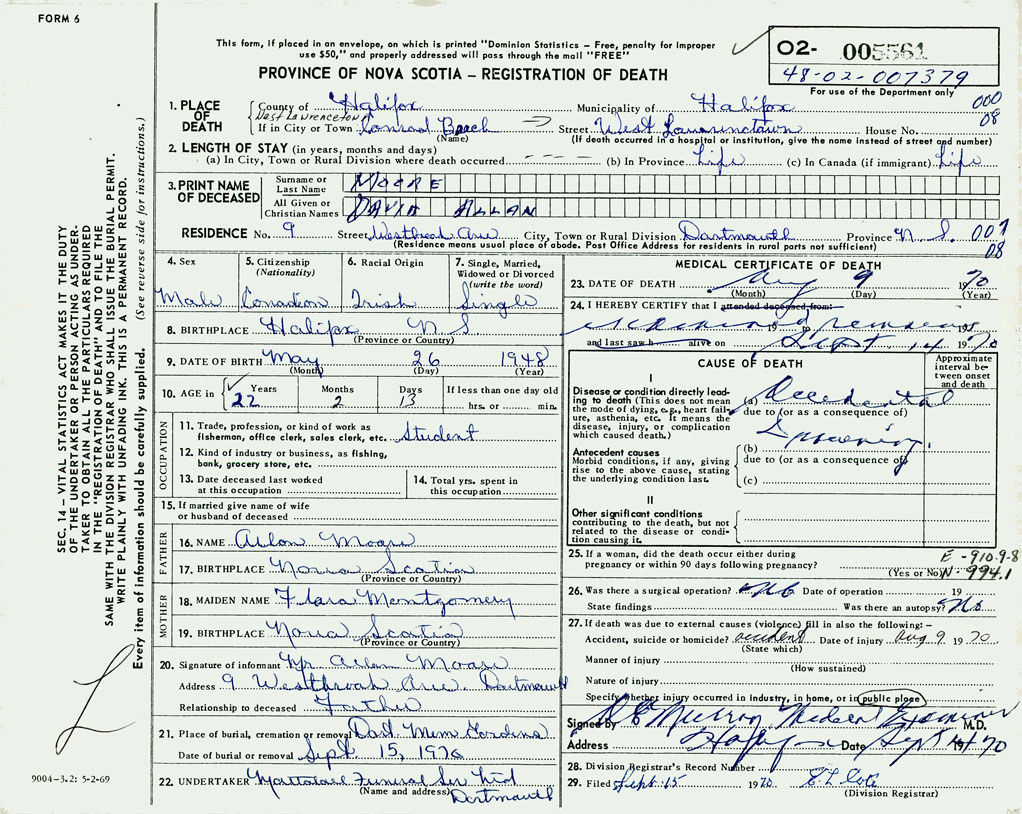 FORM 6
This form, if placed in an envelope, on which is printed "Dominion Statistics – Free, penalty for improper
use $50," and properly addressed will pass through the mail "FREE"
02- 005561
48-02-007379
For use of the Department only
PROVINCE OF NOVA SCOTIA – REGISTRATION OF DEATH
1. PLACE OF DEATH
County of Halifax Municipality of Halifax 000
West Lawrencetown 08
If in City or Town Conrad Beach Street West Lawrencetown House No.
(Name) (If death occurred in a hospital or institution, give the name instead of street and number)
2. LENGTH OF STAY (in years, months and days)
(a) In City, Town or Rural Division where death occurred - - - - (b) In Province Life (c) In Canada (if immigrant) Life
3. PRINT NAME OF DECEASED
Surname or Last Name MOORE
All Given or Christian Names DAVID ALLAN
RESIDENCE No. 9 Street Westbrook Ave City, Town or Rural Division Dartmouth Province N.S. 007
08
(Residence means usual place of abode. Post Office Address for residents in rural parts not sufficient)
4. Sex Male
5. Citizenship (Nationality) Canadian
6. Racial Origin Irish
7. Single, Married, Widowed or Divorced (write the word) Single
8. BIRTHPLACE Halifax N S
(Province or Country)
9. DATE OF BIRTH May 26 1948
(Month) (Day) (Year)
10. AGE in Years Months Days If less than one day old
22 2 13 hrs. or min.
OCCUPATION
11. Trade, profession, or kind of work as
fisherman, office clerk, sales clerk, etc. Student
12. Kind of industry or business, as fishing,
bank, grocery store, etc.
13. Date deceased last worked
at this occupation
14. Total yrs. spent in
this occupation
15. If married give name of wife
or husband of deceased
FATHER
16. NAME Allan
17. BIRTHPLACE Nova Scotia
(Province or Country)
MOTHER
18. MAIDEN NAME Flora Montgomery
19. BIRTHPLACE Nova Scotia
(Province or Country)
20. Signature of informant Mr Allan
Address 9 Westbrook Ave. Dartmouth
Relationship to deceased Father
21. Place of burial, cremation or removal Dart Mem Gardens
Date of burial or removal Sept. 15, 1970
22. UNDERTAKER Mattatall Funeral Ser Ltd
(Name and address) Dartmouth
MEDICAL CERTIFICATE OF DEATH
23. DATE OF DEATH Aug 9 1970
(Month) (Day) (Year)
24. I HEREBY CERTIFY that I attended deceased from:
examined remains
19 to 19
and last saw h alive on Sept 14 1970
CAUSE OF DEATH
Approximate interval between onset and death
I
Disease or condition directly leading to death (This does not mean the mode of dying, e.g., heart failure, asthenia, etc. It means the disease, injury, or complication which caused death.)
(a) Accidental
due to (or as a consequence of)
Drowning.
Antecedent causes
Morbid conditions, if any, giving rise to the above cause, stating the underlying condition last.
(b)
due to (or as a consequence of)
(c)
II
Other significant conditions
contributing to the death, but not related to the disease or condition causing it.
25. If a woman, did the death occur either during
pregnancy or within 90 days following pregnancy? (Yes or No)
E - 910.9-8
N - 994.1
26. Was there a surgical operation? No Date of operation 19
State findings Was there an autopsy? No
27. If death was due to external causes (violence) fill in also the following: –
Accident, suicide or homicide? accident Date of injury Aug 9 1970
(State which)
Manner of injury
(How sustained)
Nature of injury
Specify whether injury occurred in industry, in home, or in public place
Signed by Murray Medical Examiner M.D.
Address Date Sept 14 1970
28. Division Registrar's Record Number
29. Filed Sept 15 1970
(Division Registrar)
SEC. 14 – VITAL STATISTICS ACT MAKES IT THE DUTY
OF THE UNDERTAKER OR PERSON ACTING AS UNDER-
TAKER TO OBTAIN ALL THE PARTICULARS REQUIRED
IN THE "REGISTRATION OF DEATH" AND TO FILE THE
SAME WITH THE DIVISION REGISTRAR WHO SHALL ISSUE THE BURIAL PERMIT.
WRITE PLAINLY WITH UNFADING INK. THIS IS A PERMANENT RECORD.
Every item of information should be carefully supplied. (See reverse side for instructions.)
9004-3.2: 5-2-69